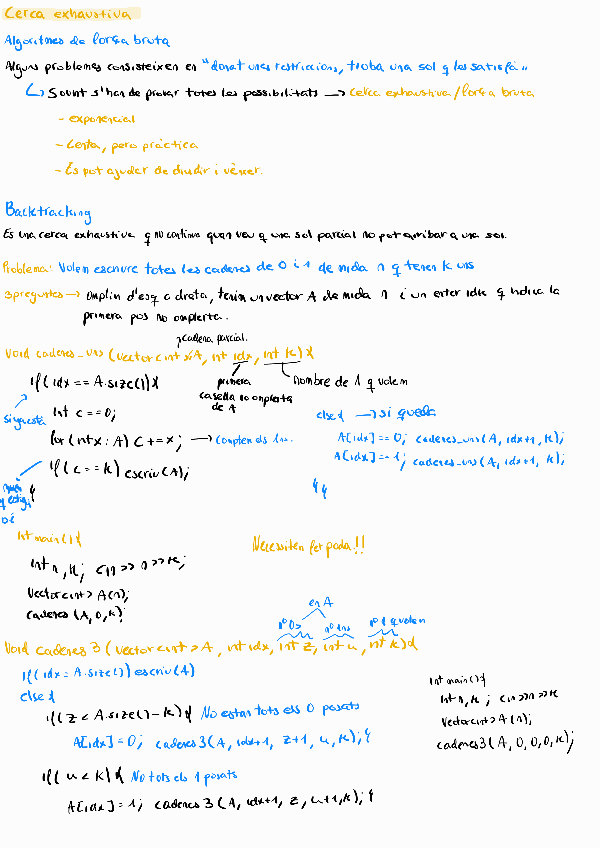 Cerca exhaustiva
Algoritmes de força bruta
Alguns problemes consisteixen en "donat unes restriccions, troba una sol q les satisfà"
↳ Sovint s'han de provar totes les possibilitats → cerca exhaustiva/força bruta
- exponencial
- Lenta, pero pràctica
- Es pot ajudar de dividir i vèncer.
Backtracking
És una cerca exhaustiva q no continua quan veu q una sol parcial no pot arribar a una sol.
Problema: Volem escriure totes les cadenes de 0 i 1 de mida n q tenen k uns
3 preguntes → Omplim d'esq a dreta, tenim un vector A de mida n i un enter idx q indica la
primera pos no omplerta.
cadena parcial.
Void cadenes_uns (vector<int>& A, int idx, int k) {
if (idx == A.size()) {
primera
casella no omplerta
de A
Nombre de 1 q volem
si ja està
int c == 0;
for (int x : A) c += x; → Compten els 1s.
if (c == k) escriu(A);
}
else { → si queda
A[idx] == 0; cadenes_uns(A, idx+1, k);
A[idx] == 1; cadenes_uns(A, idx+1, k);
}}
int main() {
int n, k; cin >> n >> k;
Vector<int> A(n);
cadenes (A, 0, k);
Necessiten fer poda!!
en A
nº 0s
nº 1ns
nº 1 q volem
Void cadenes3 (vector<int> A, int idx, int z, int u, int k) {
if (idx = A.size()) escriu(A)
else {
if (z < A.size() - k) { No estan tots els 0 posats
A[idx] = 0; cadenes3(A, idx+1, z+1, u, k); }
if (u < k) { No tots els 1 posats
A[idx] = 1; cadenes3(A, idx+1, z, u+1, k); }
int main() {
int n, k; cin >> n >> k
Vector<int> A(n);
cadenes3(A, 0, 0, 0, k);